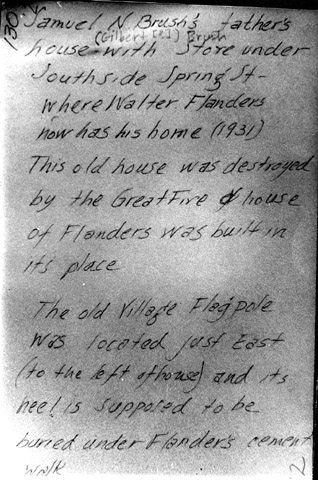 130
Samuel N Brush's father's
(Gilbert Brush
house with store under
South side Spring St-
where Walter Flanders
now has his home (1931)
This old house was destroyed
by the Great Fire & house
of Flanders was built in
its place
The old Village Flagpole
was located just East
(to the left of house) and its
heel is supposed to be
buried under Flander's cement
walk
2